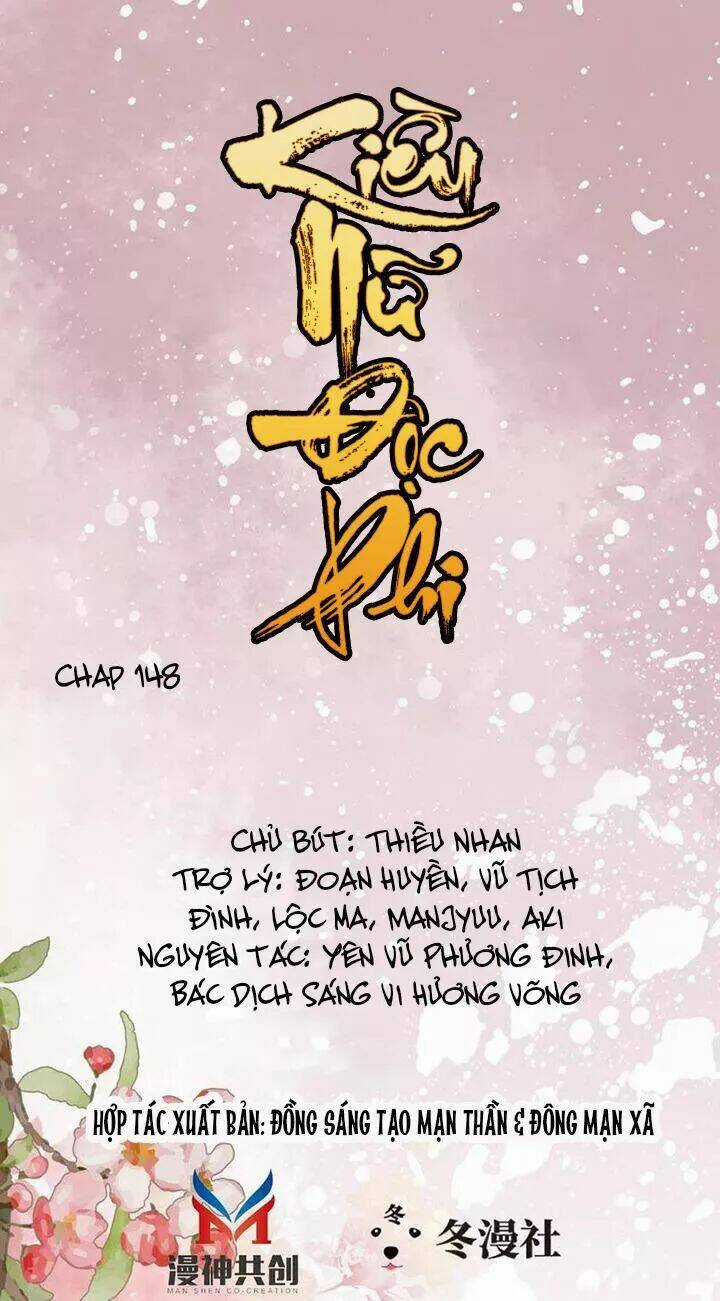 Kiều
Nữ
Độc
Phi
CHAP 148
CHỦ BÚT: THIỀU NHAN
TRỢ LÝ: ĐOẠN HUYỀN, VŨ TỊCH
ĐÌNH, LỘC MA, MANJYUU, AKI
NGUYÊN TÁC: YÊN VŨ PHƯƠNG ĐINH,
BÁC DỊCH SÁNG VI HƯƠNG VÕNG
HỢP TÁC XUẤT BẢN: ĐỒNG SÁNG TẠO MẠN THẦN & ĐÔNG MẠN XÃ
漫神共创
MAN SHEN CO-CREATION
冬
冬漫社